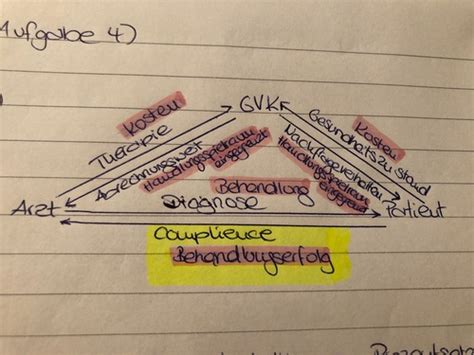 Aufgabe 4)
GVK
Kosten
Therapie
Abrechnungsweit
Handlungsspielraum
eingegrenzt
Kosten
Gesundheitszustand
Nachfrageverhalten
Handlungsspielraum
eingegrenzt
Behandlung
Arzt
Diagnose
Patient
Complience
Behandlungserfolg